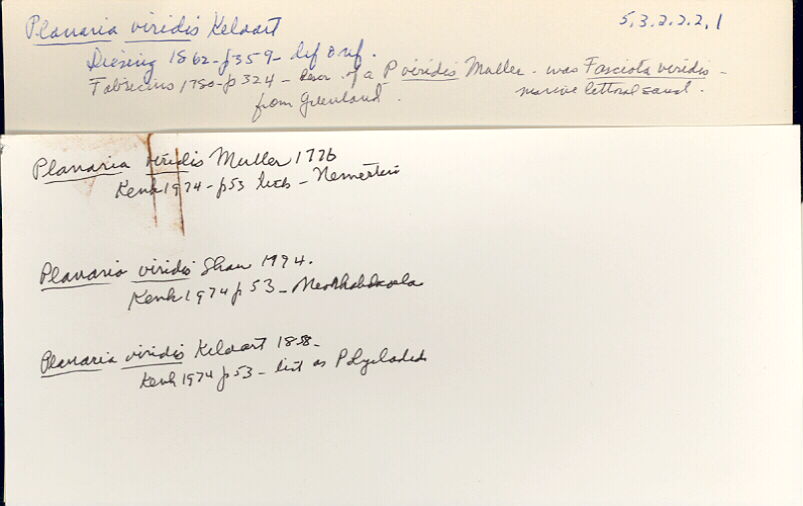 Planaria viridis Kelaart 5.3.2.2.2.1
Diesing 1862-p359- dif & ref.
Fabricius 1780-p324- descr. of a P viridis Muller - was Fasciola viridis -
from Greenland. marine littoral sand.
Planaria viridis Muller 1776
Kenk 1974-p53 lists - Nemertini
Planaria viridis Shaw 1794.
Kenk 1974 p53 - Neorhabdocoela
Planaria viridis Kelaart 1858-
Kenk 1974 p53 - list as Polyclad